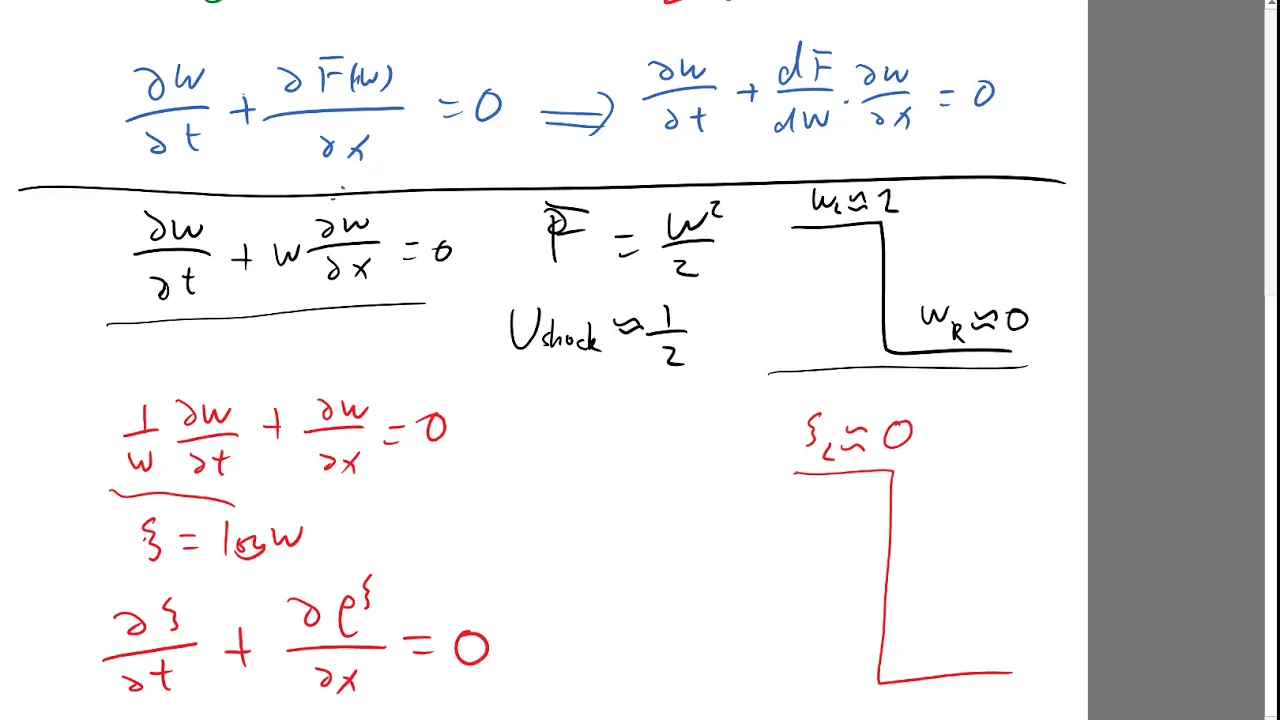 ∂W/∂t + ∂F̄(W)/∂x = 0 ⟹ ∂W/∂t + dF̄/dW · ∂W/∂x = 0
∂W/∂t + W ∂W/∂x = 0
F̄ = W²/2
W_L ≈ 2
W_R ≈ 0
U_shock ≈ 1/2
1/W ∂W/∂t + ∂W/∂x = 0
ξ_L ≈ 0
ξ = log W
∂ξ/∂t + ∂e^ξ/∂x = 0